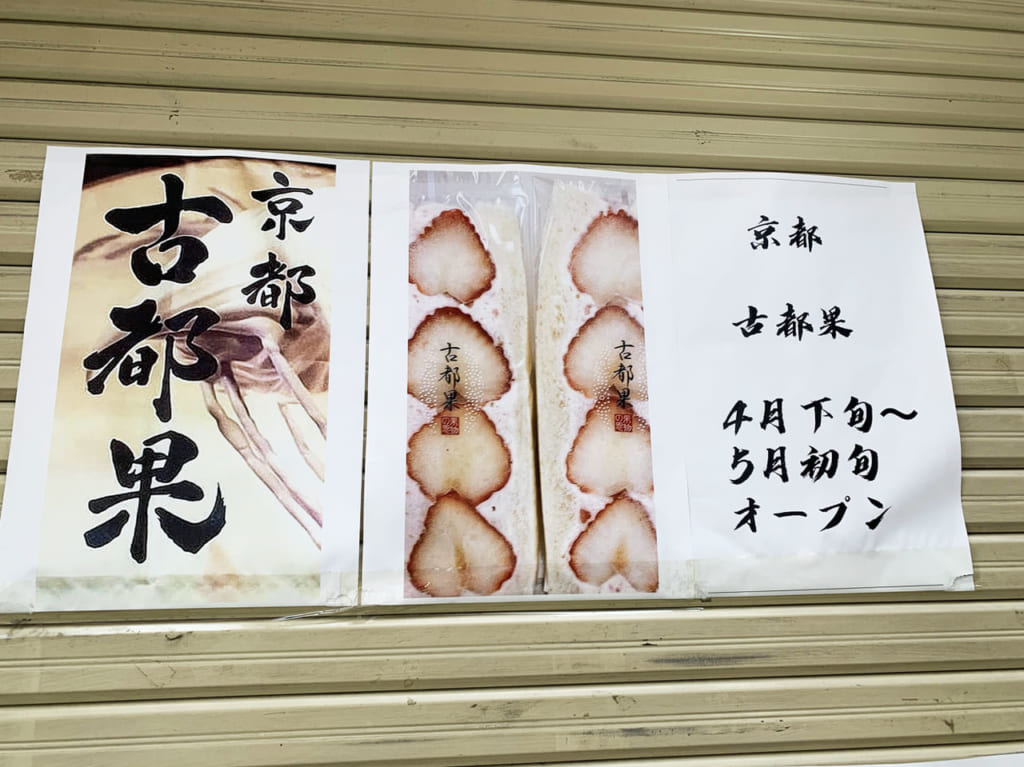 京都
古都果
古都果
古都果
京都
古都果
4月下旬〜
5月初旬
オープン